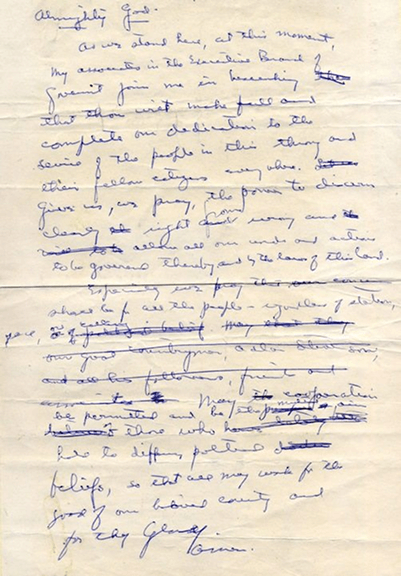 Almighty God.
As we stand here, at this moment,
my associates in the Executive Branch of
Gov'mt join me in beseeching
that thou wilt make full and
complete our dedication to the
service of the people in this throng and
their fellow citizens everywhere.
Give us, we pray, the power to discern
clearly right from wrong and
allow all our words and actions
to be governed thereby and by the laws of this land.
Especially we pray that our concern
shall be for all the people regardless of station,
race, or calling. May
our good
and all his followers,
May cooperation
be permitted and be the mutual aim
of those who
hold to differing political
beliefs, so that all may work for the
good of our beloved country and
for Thy Glory.
Amen.